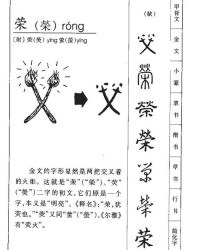 荣（榮）róng
［附］荧（熒）yíng 萤（螢）yíng
金文的字形显然是两把交叉着
的火炬。这就是“荣”（“榮”）、“荧”
（“熒”）二字的初文，它们原是一个
字，本义是“明亮”。《释名》：“荣，犹
荧也。”“荧”又同“萤”（“螢”）。《尔雅》
有“荧火”。
（缺）
榮
榮
榮
榮
荣
甲骨文
金文
小篆
隶书
楷书
草书
行书
简化字